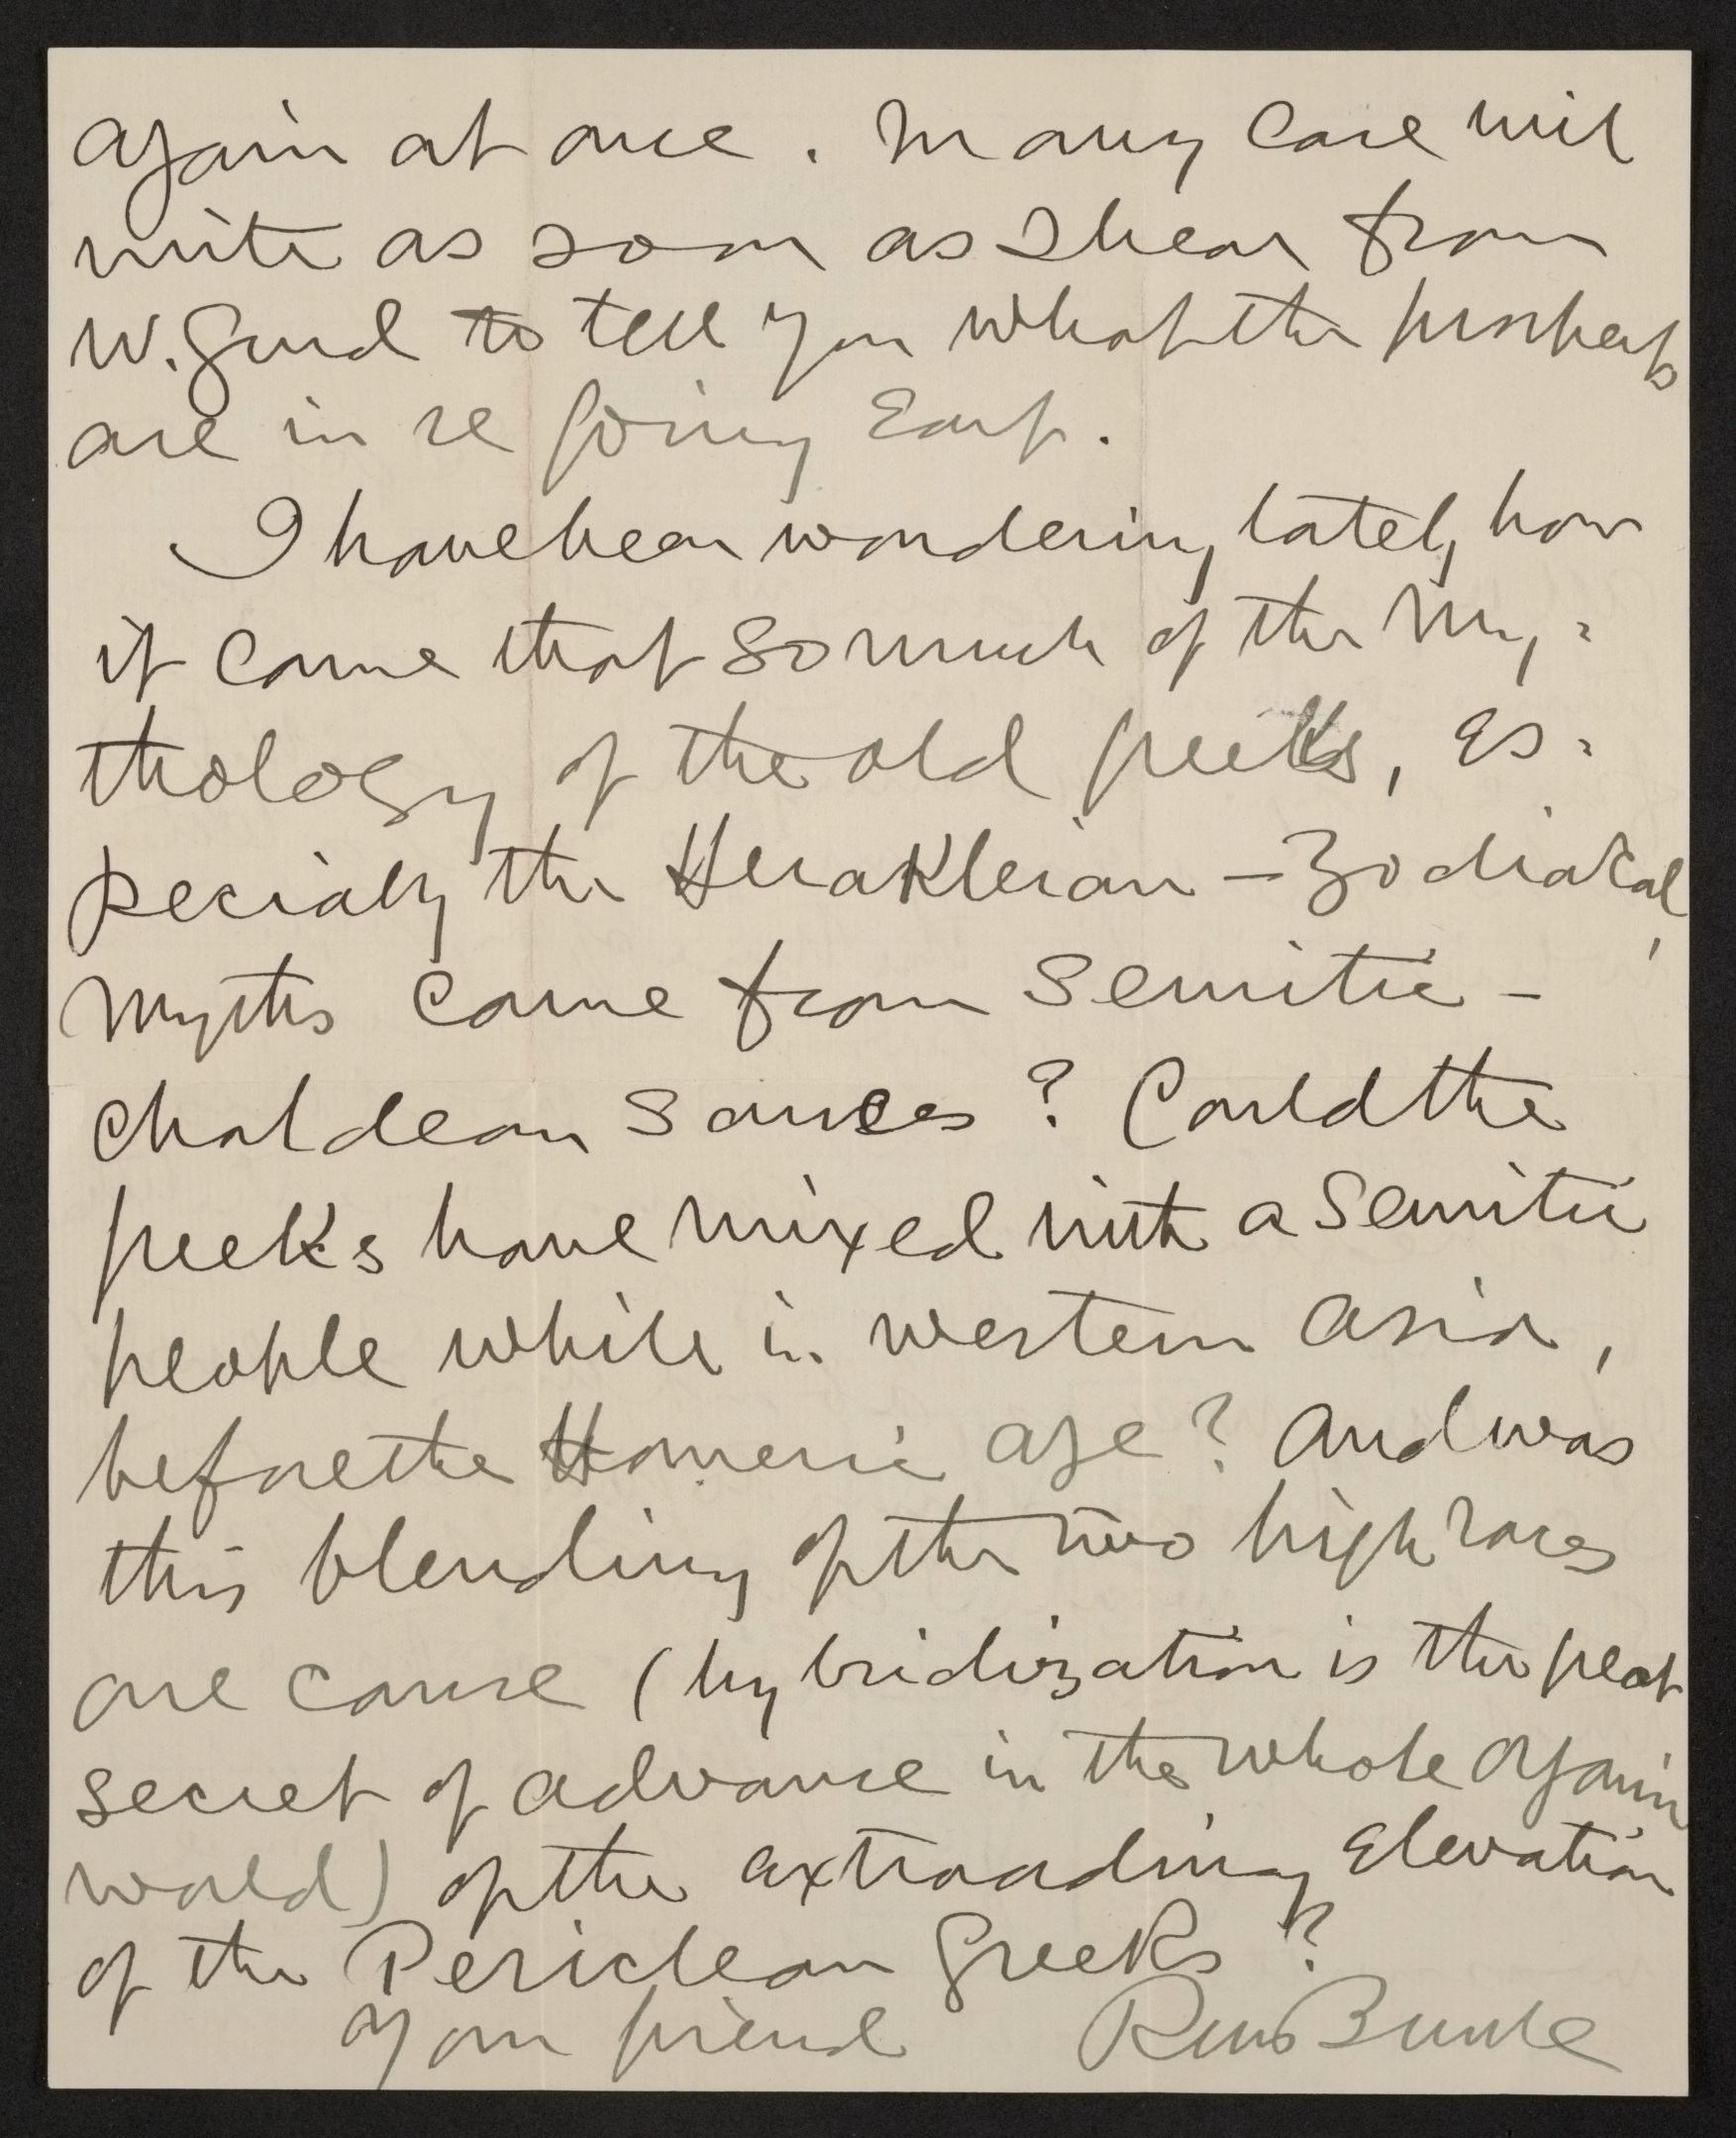 again at once. In any case will
write as soon as I hear from
W. Gurd to tell you what the prospects
are in re going East.
I have been wondering lately how
it came that so much of the My-
thology of the old Greeks, es-
pecially the Herakleian - Zodiakal,
myths came from Semitic -
Chaldean sources? Could the
Greeks have mixed with a Semitic
people while in western Asia,
before the Homeric age? And was
this blending of the two high races
one cause (hybridization is the great
secret of advance in the whole organic
world) of the extraordinary elevation
of the Periclean Greeks?
Your friend R M Bucke